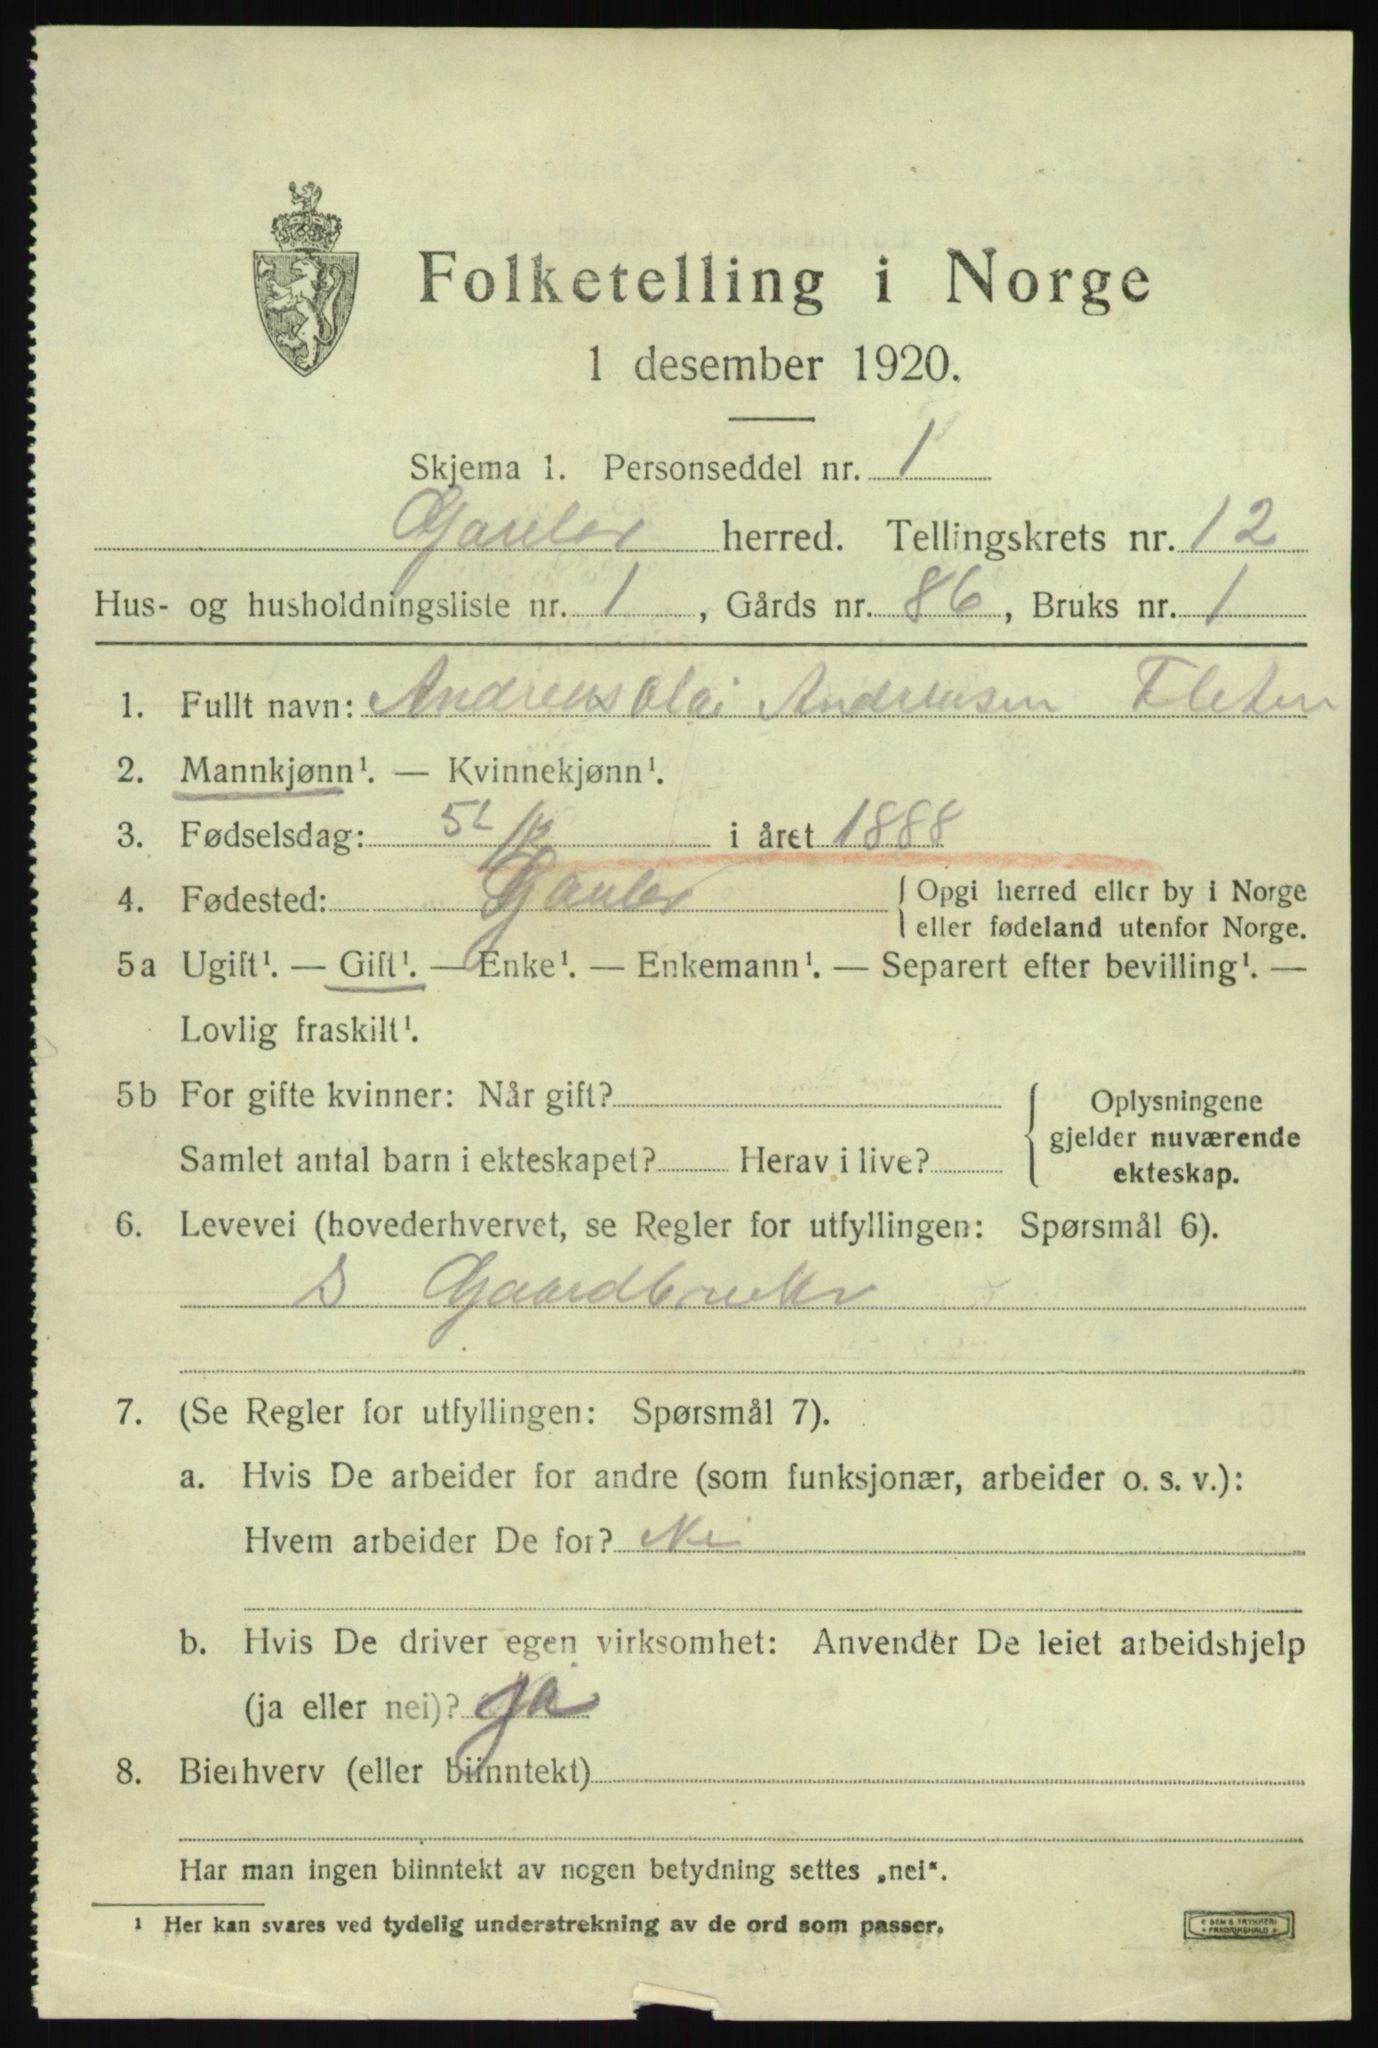 Folketelling i Norge
1 desember 1920.
Skjema 1. Personseddel nr. 1
Gauler herred. Tellingskrets nr. 12
Hus- og husholdningsliste nr. 1, Gårds nr. 86, Bruks nr. 1
1. Fullt navn: Andreas Olai Andreasen Fleten
2. Mannkjønn¹. — Kvinnekjønn¹.
3. Fødselsdag: i året 1888
4. Fødested: Gauler { Opgi herred eller by i Norge
eller fødeland utenfor Norge.
5a Ugift¹. — Gift¹. — Enke¹. — Enkemann¹. — Separert efter bevilling¹. —
Lovlig fraskilt¹.
5b For gifte kvinner: Når gift? { Oplysningene
gjelder nuværende
Samlet antal barn i ekteskapet? Herav i live?
ekteskap.
6. Levevei (hovederhvervet, se Regler for utfyllingen: Spørsmål 6).
S Gaardbruker
7. (Se Regler for utfyllingen: Spørsmål 7).
a. Hvis De arbeider for andre (som funksjonær, arbeider o. s. v.):
Hvem arbeider De for? Nei
b. Hvis De driver egen virksomhet: Anvender De leiet arbeidshjelp
(ja eller nei)? ja
8. Bierhverv (eller biinntekt)
Har man ingen biinntekt av nogen betydning settes „nei“.
¹ Her kan svares ved tydelig understrekning av de ord som passer.
E SEM'S TRYKKERI
FREDRIKSHALD